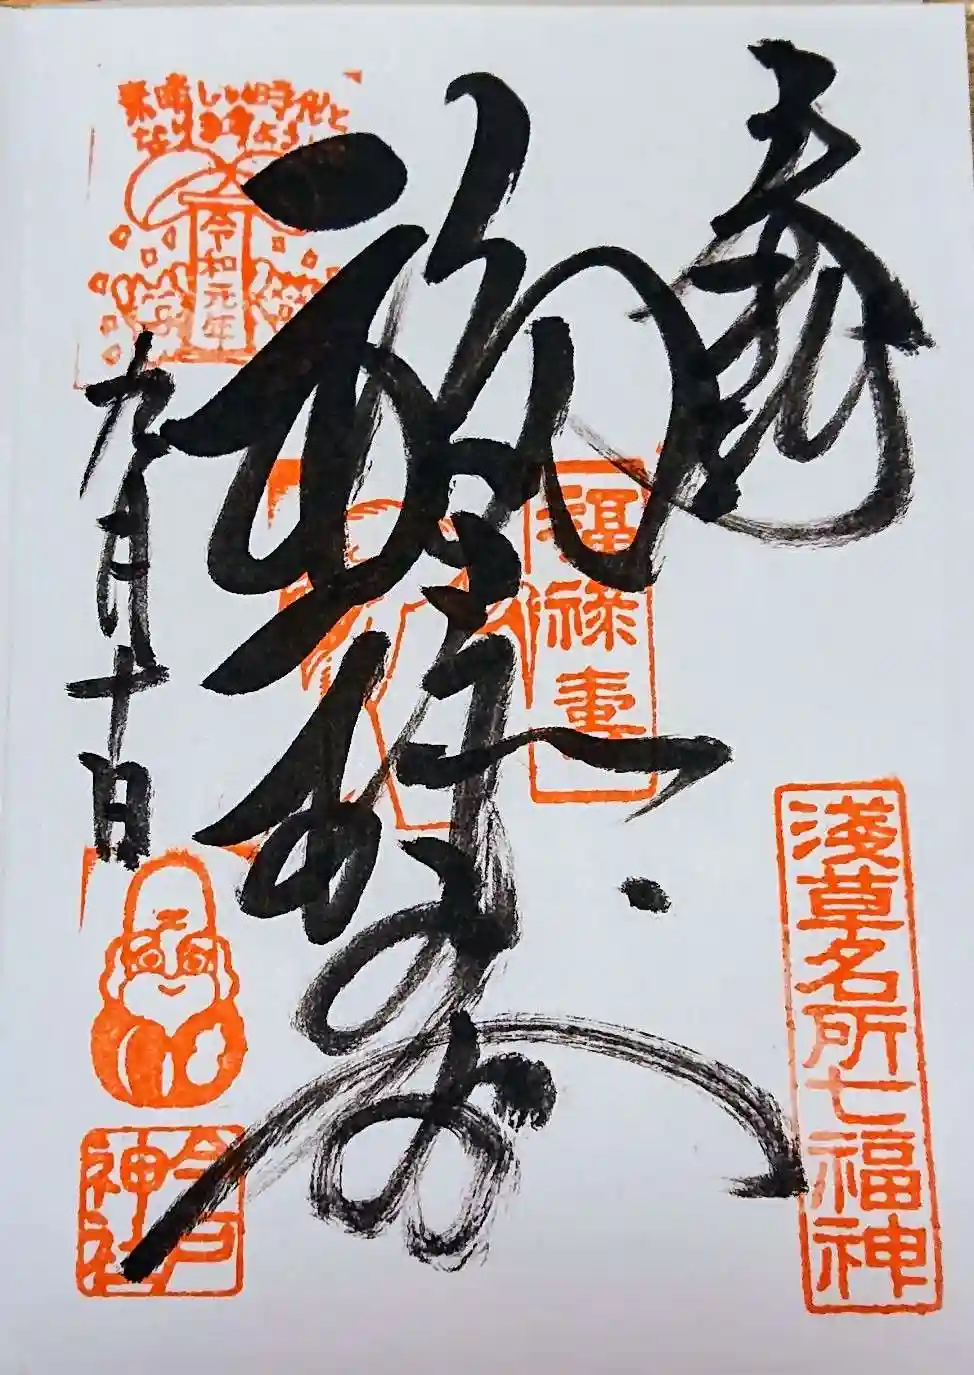 奉拝
浅草名所七福神
福禄寿
福禄壽
素晴しい時代と
なりますよう
令和元年
九月十日
今戸
神社